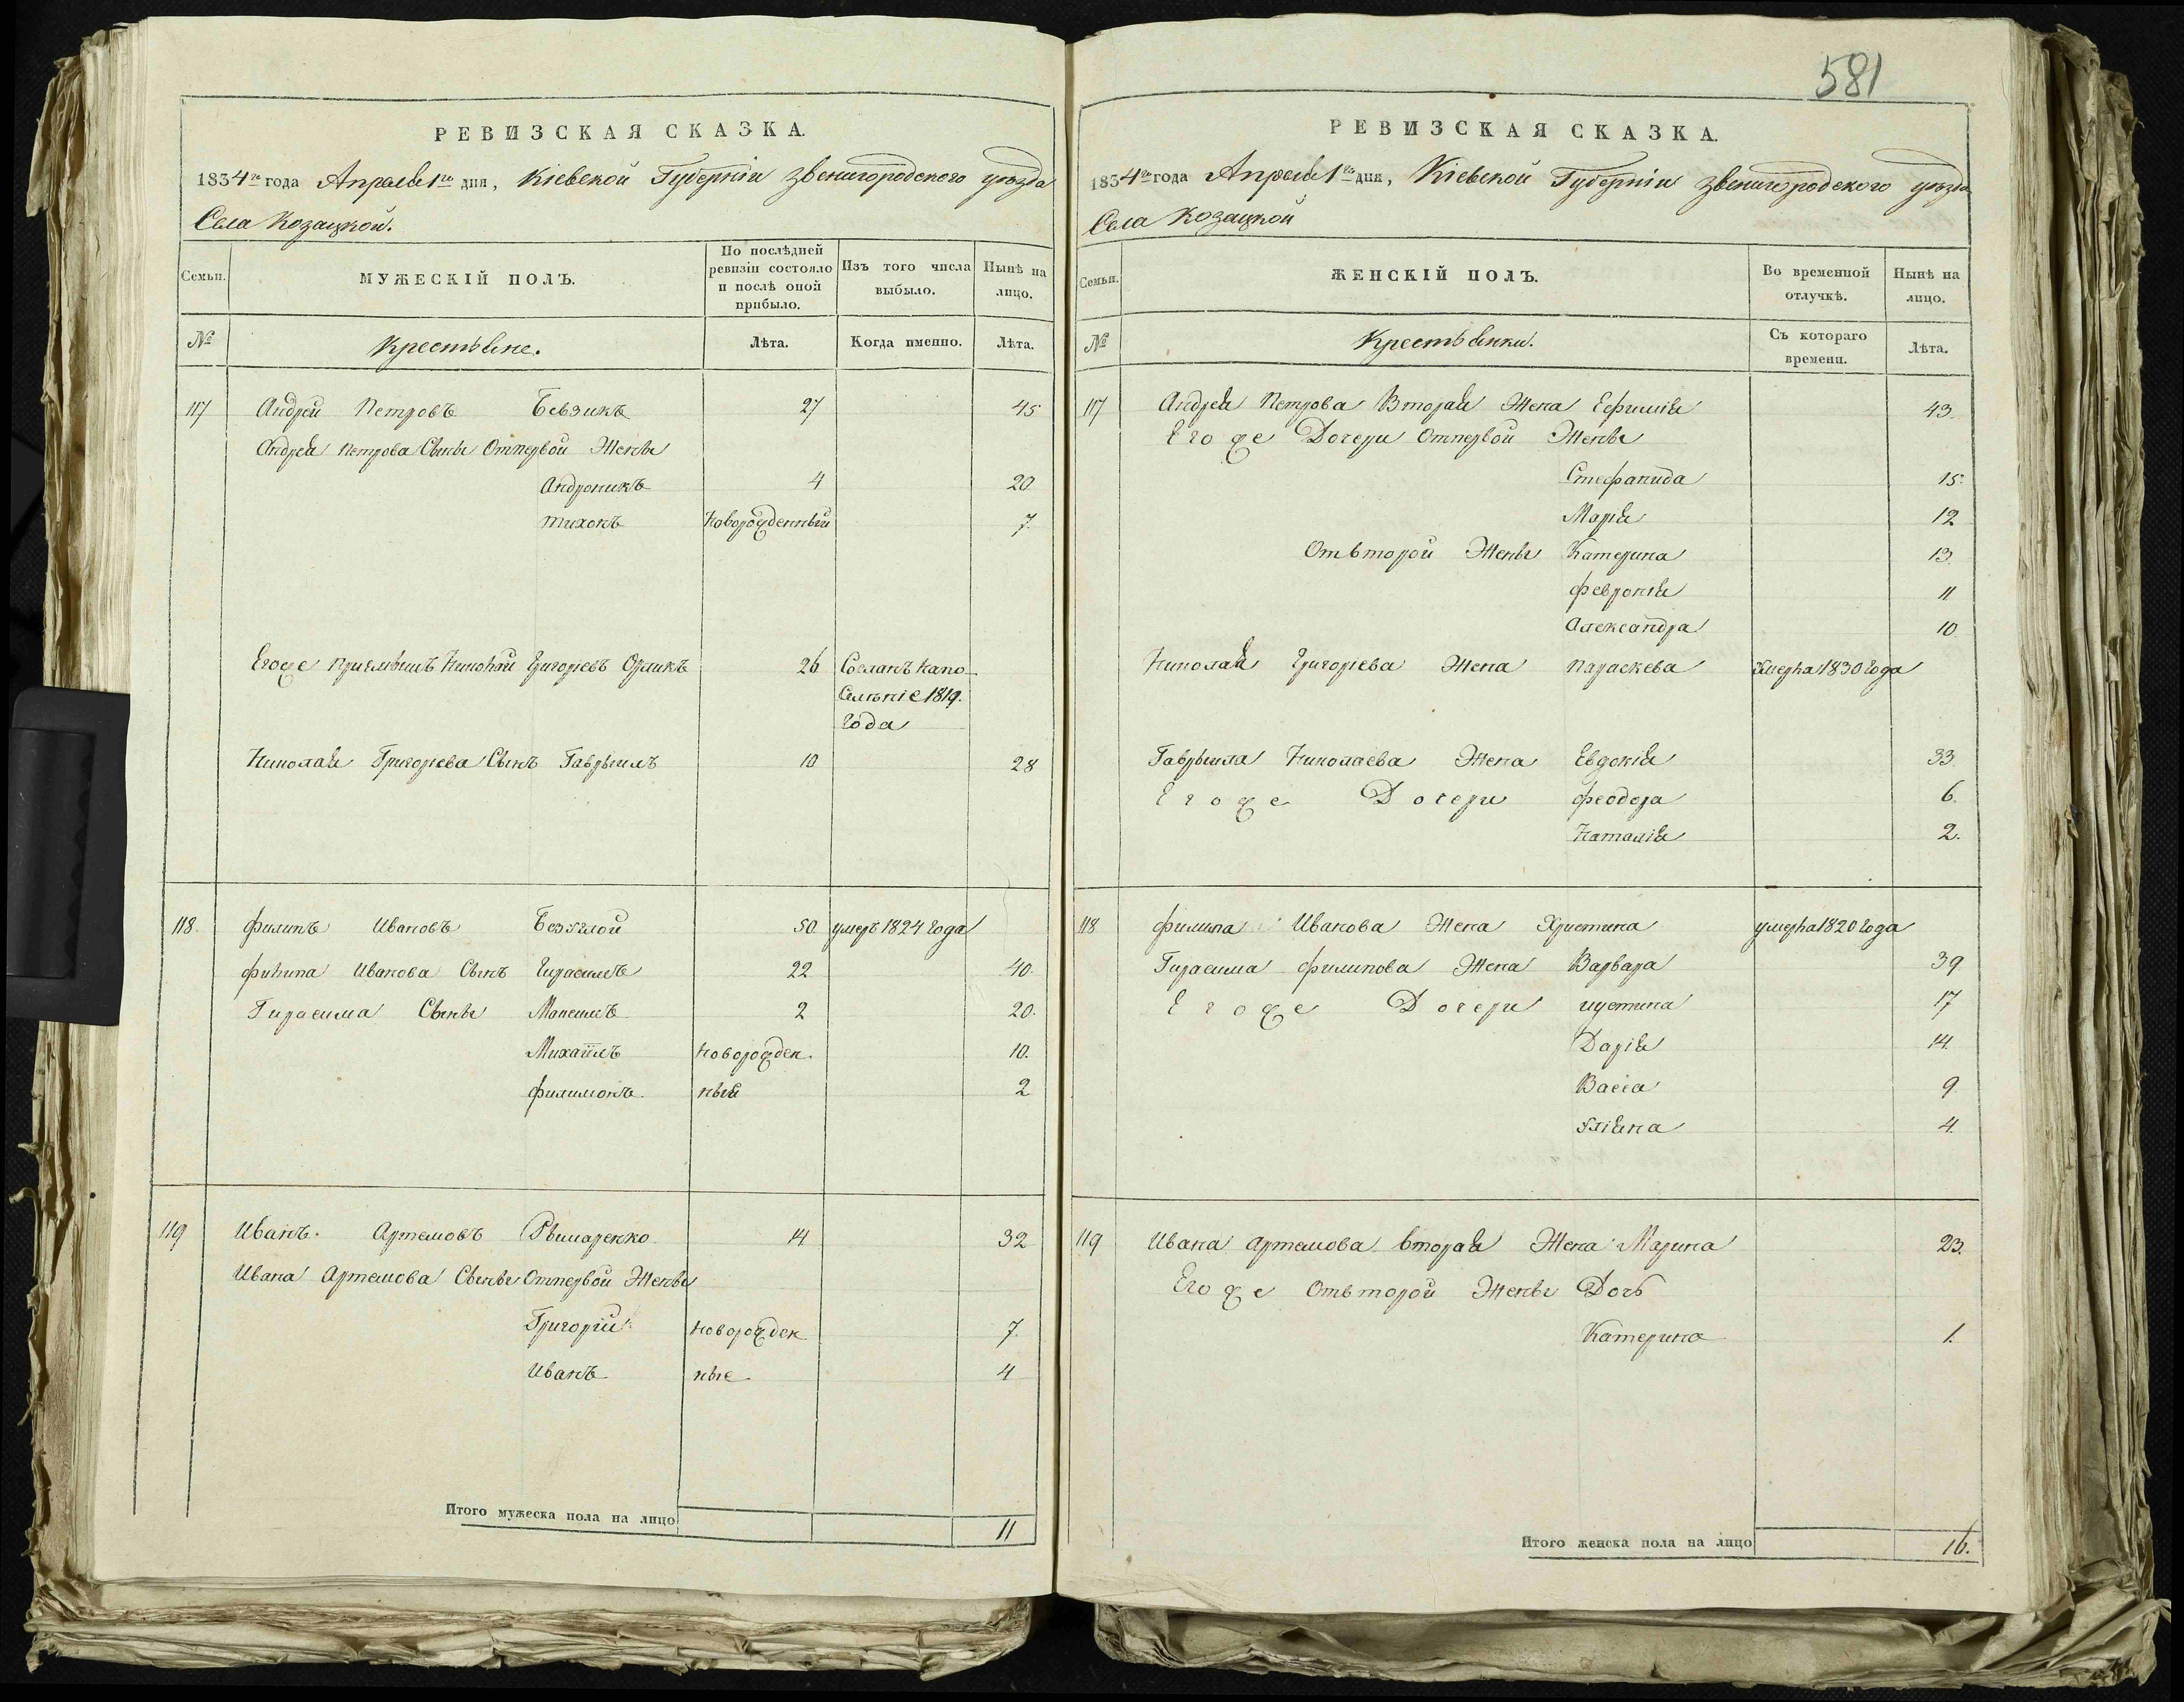 581
РЕВИЗСКАЯ СКАЗКА.
1834го года Апреля 1го дня, Кіевской Губерніи звенигородского уезда
Села Козацкой.
Семьи. МУЖЕСКІЙ ПОЛЪ. По послѣдней ревизіи состояло и послѣ оной прибыло. Изъ того числа выбыло. Нынѣ на лицо.
№ Крестьяне. Лѣта. Когда именно. Лѣта.
117 Андрей Петровъ Бевзикъ 27 45
Андрея Петрова Сыны Отпервой Жены
Андроникъ 4 20
тихонъ Новорожденный 7.
Егоже приемышъ Николай Григорьевъ Орликъ 26 Сосланъ напо
Селѣніе 1819.
года
Николая Григорьева Сынъ Гаврыилъ 10 28
118. филипъ Ивановъ Безуглой 50 умеръ 1824 года
филипа Иванова Сынъ Гирасимъ 22 40.
Гирасима Сыны Максимъ 2 20.
Михаилъ Новорожден. 10.
филимонъ ный 2
119 Иванъ. Артемовъ Рымаренко 14 32
Ивана Артемова Сыны Отпервой Жены
Григорій новорожден 7.
Иванъ ные 4
Итого мужеска пола на лицо 11
РЕВИЗСКАЯ СКАЗКА.
1834го года Апреля 1го дня, Кіевской Губерніи звенигородского уезда
Села Козацкой
Семьи. ЖЕНСКІЙ ПОЛЪ. Во временной отлучкѣ. Нынѣ на лицо.
№ Крестьянки. Съ котораго времени. Лѣта.
117 Андрея Петрова Вторая Жена Ефимія 43.
Егоже Дочери Отпервой Жены
Стефанида 15.
Марія 12
Отвторой Жены Катерина 13.
февронія 11
Александра 10
Николая Григорьева Жена параскева Умерла 1830 года
Гаврыила Николаева Жена Евдокія 33.
Егоже Дочери феодора 6.
Наталія 2.
118 филипа Иванова Жена Христина умерла 1820 года
Гирасима филипова Жена Варвара 39
Егоже Дочери иустина 17
Дарія 14.
Васса 9.
уліяна 4.
119 Ивана Артемова вторая Жена Марина 23.
Егоже Отвторой Жены Дочь
Катерина 1.
Итого женска пола на лицо 16.